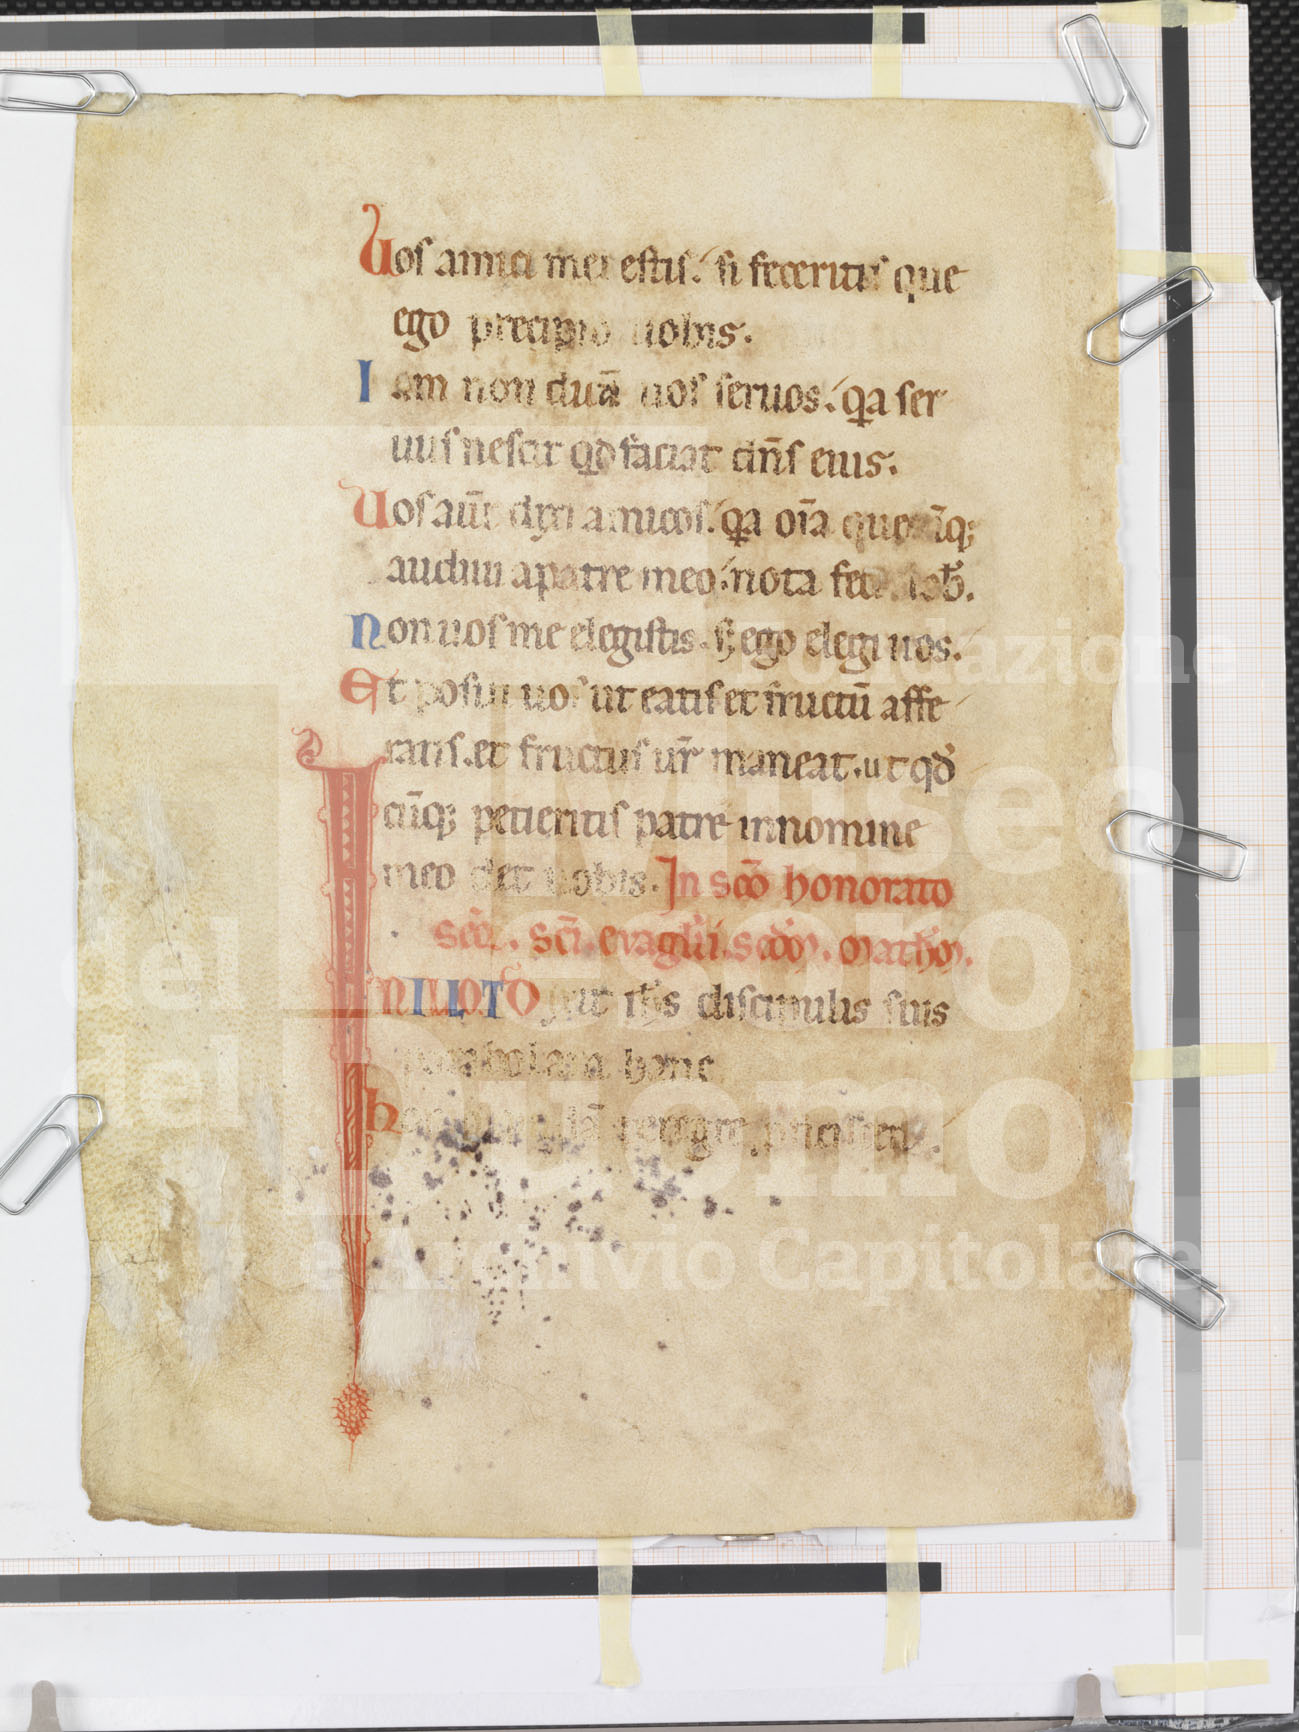 Uos amici mei estis. si feceritis que
ego precipio uobis.
Iam non dicā uos seruos. qa ser
uus nescit qd faciat dn̄s eius.
Uos aūt dixi amicos. qa oīa que cūq;
audiui a patre meo. nota feci uob̄.
Non uos me elegistis. s; ego elegi uos.
Et posui uos ut eatis et fructū affe
ratis. et fructus ur̄ maneat. ut qd
cūq; petieritis patre in nomine
meo det uobis. In sc̄o honorato
sc̄i. euāglii. scdm. math̄m.
IN ILLO. T. Dixit ih̄s discipulis suis
parabolam hanc
Homo peregre proficiscens.
Fondazione
Museo
del Tesoro
dal Duomo
e Archivio Capitolare